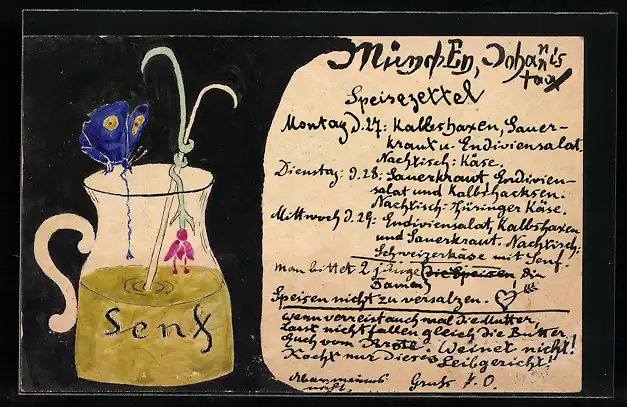 Senf
München, Johannis
tag
Speisezettel
Montag d. 27: Kalbshaxen, Sauer-
kraut u. Endiviensalat.
Nachtisch: Käse.
Dienstag: d. 28: Sauerkraut Endivien-
salat und Kalbshacksen.
Nachtisch: Thüringer Käse.
Mittwoch d. 29: Endiviensalat, Kalbshaxen
und Sauerkraut. Nachtisch:
Schweizerkäse mit Senf.
man bittet 2 junge die Speisen die
Damen
Speisen nicht zu versalzen.
wenn verreist auch mal die Mutter,
Laut nicht fallen gleich die Butter
Auch vom Brote Weinet nicht!
Kocht nur dieses Leibgericht!
Aber meines
nicht.
Gruss V. O.